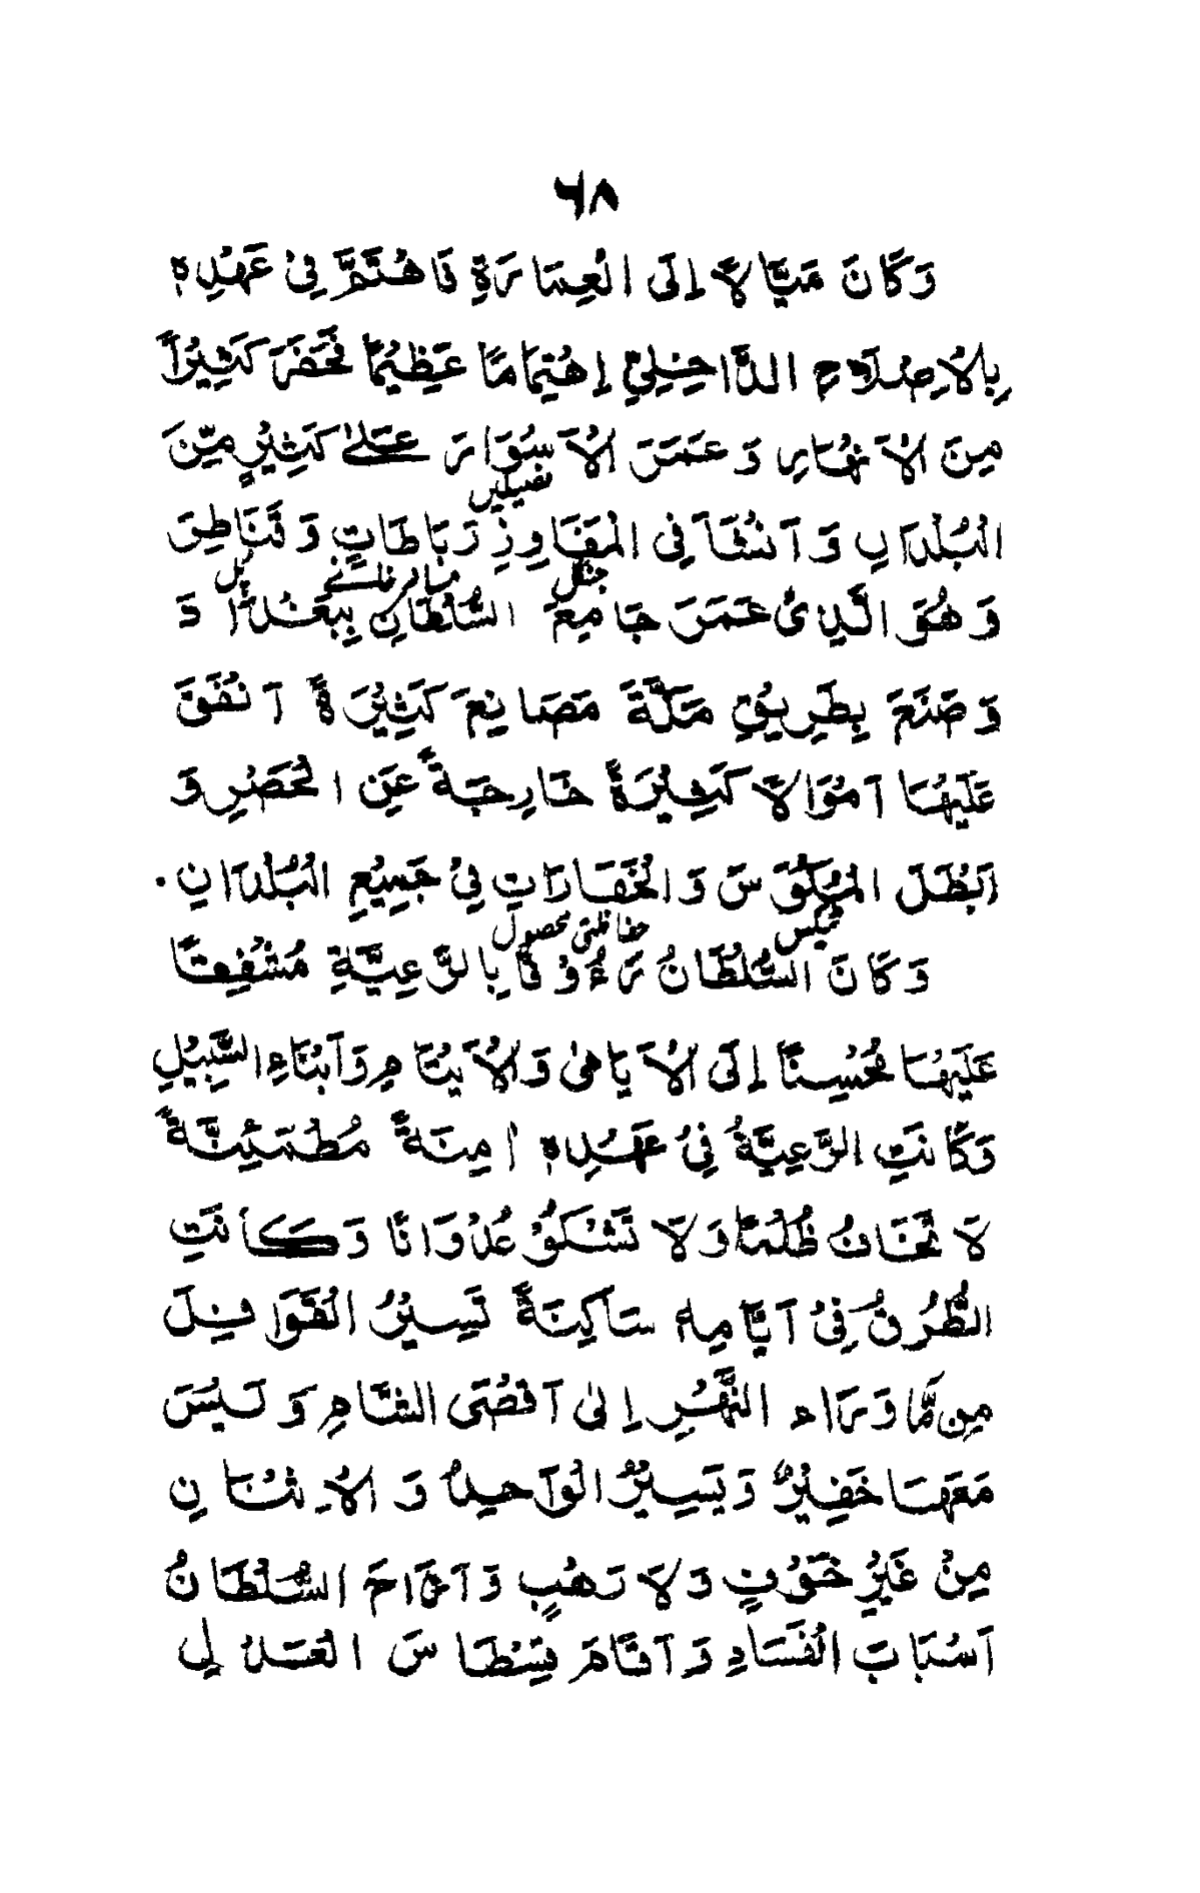 ٦٨
وَكَانَ مَيَّالًا إِلَى الْعِمَارَةِ فَاهْتَمَّ فِيْ عَهْدِهٖ
بِالْاِصْلَاحِ الدَّاخِلِيِّ اِهْتِمَامًا عَظِيْمًا فَحَفَرَ كَثِيْرًا
مِنَ الْاَنْهَارِ وَعَمَرَ الْاَسْوَارَ عَلٰى كَثِيْرٍ مِّنَ
فصيلين
الْبُلْدَانِ وَاَنْشَأَ فِي الْمَفَاوِزِ رَبَاطَاتٍ وَقَنَاطِرَ
جنگل مسافرخانے پل
وَهُوَ الَّذِيْ عَمَرَ جَامِعَ السُّلْطَانِ بِبَغْدَادَ
وَصَنَعَ بِطَرِيْقِ مَكَّةَ مَصَانِعَ كَثِيْرَةً اَنْفَقَ
عَلَيْهَا اَمْوَالًا كَثِيْرَةً خَارِجَةً عَنِ الْحَصْرِ وَ
اَبْطَلَ الْمُكُوْسَ وَالْخَفَارَاتِ فِيْ جَمِيْعِ الْبُلْدَانِ.
ٹیکس حفاظتی محصول
وَكَانَ السُّلْطَانُ رَءُوْفًا بِالرَّعِيَّةِ مُشْفِقًا
عَلَيْهَا مُحْسِنًا إِلَى الْاَيَامٰى وَالْاَيْتَامِ وَاَبْنَاءِ السَّبِيْلِ
وَكَانَتِ الرَّعِيَّةُ فِيْ عَهْدِهٖ اٰمِنَةً مُطْمَئِنَّةً
لَا تَخَافُ ظُلْمًا وَلَا تَشْكُوْ عُدْوَانًا وَكَانَتِ
الطُّرُقُ فِيْ اَيَّامِهٖ سَاكِنَةً تَسِيْرُ الْقَوَافِلَ
مِن مَّا وَرَاء النَّهْرِ اِلٰى اَقْصَى الشَّامِ وَلَيْسَ
مَعَهَا خَفِيْرٌ وَيَسِيْرُ الْوَاحِدُ وَالْاِثْنَانِ
مِنْ غَيْرِ خَوْفٍ وَلَا رَهْبٍ وَاَزَاحَ السُّلْطَانُ
اَسْبَابَ الْفَسَادِ وَاَقَامَ قِسْطَاسَ الْعَدْلِ